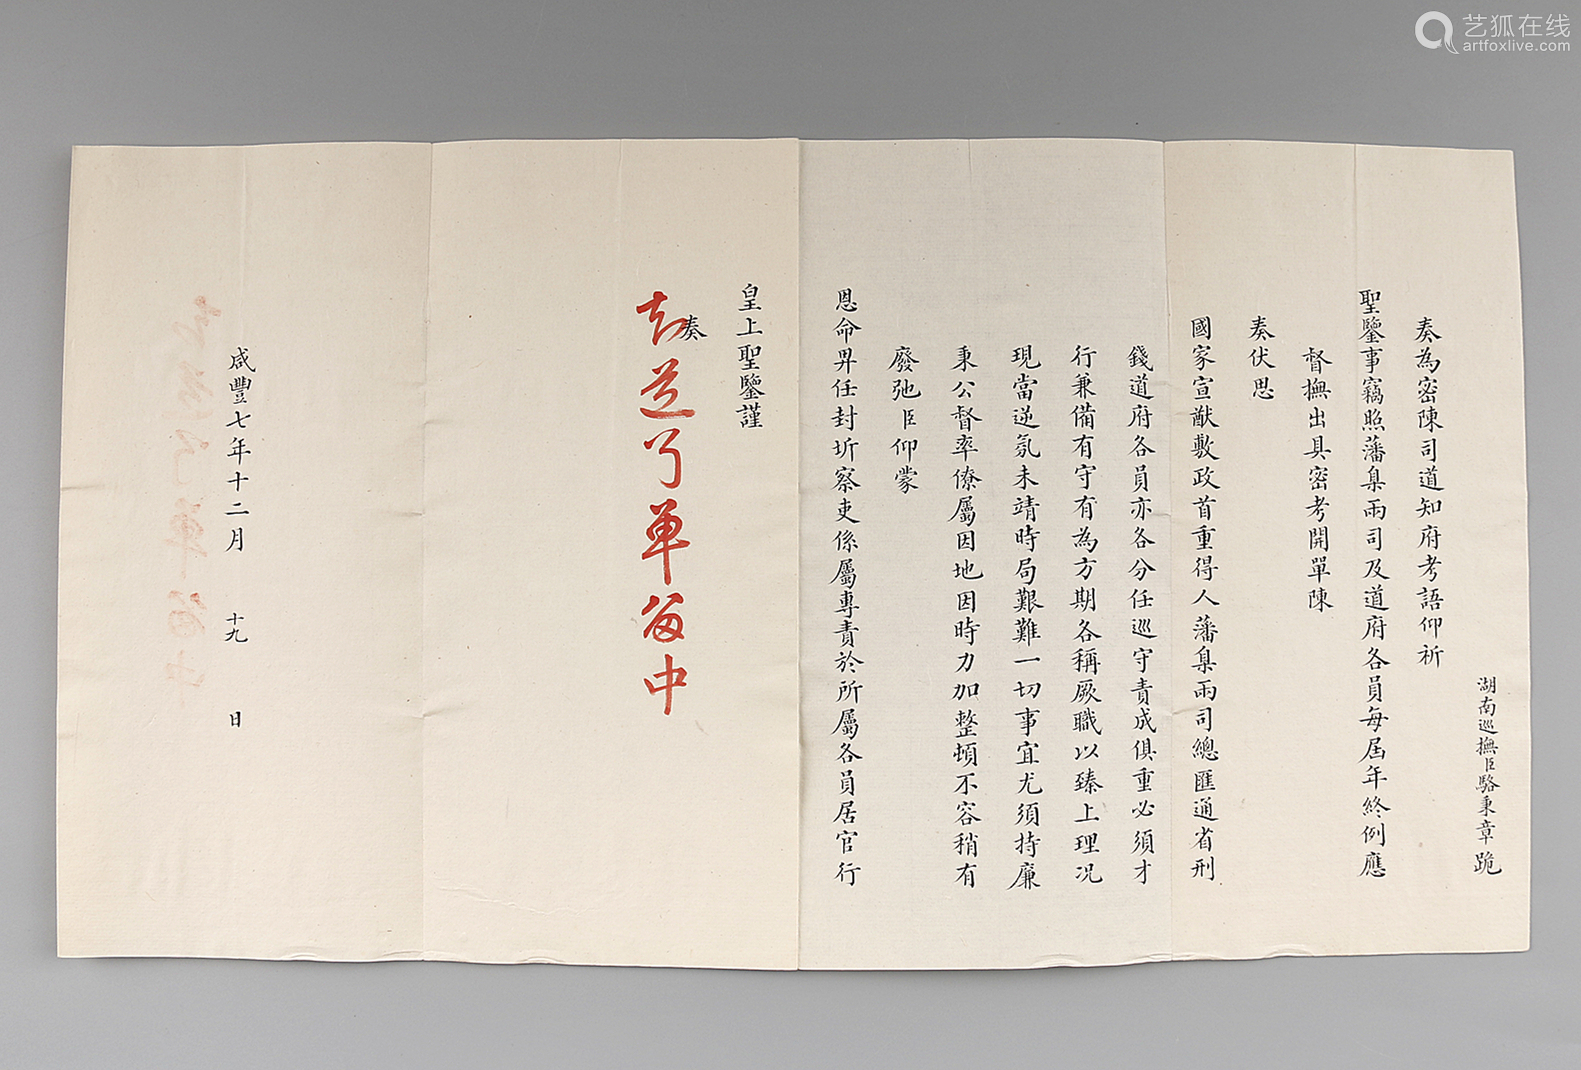 湖南巡撫臣駱秉章跪
奏為密陳司道知府考語仰祈
聖鑒事竊照藩臬兩司及道府各員每屆年終例應
督撫出具密考開單陳
奏伏思
國家宣猷敷政首重得人藩臬兩司總匯通省刑
錢道府各員亦各分任巡守責成俱重必須才
行兼備有守有為方期各稱厥職以臻上理况
現當逆氛未靖時局艱難一切事宜尤須持廉
秉公督率僚屬因地因時力加整頓不容稍有
廢弛臣仰蒙
恩命畀任封圻察吏係屬專責於所屬各員居官行
皇上聖鑒謹
奏
知道了單留中
咸豐七年十二月 十九 日
艺狐在线
artfoxlive.com